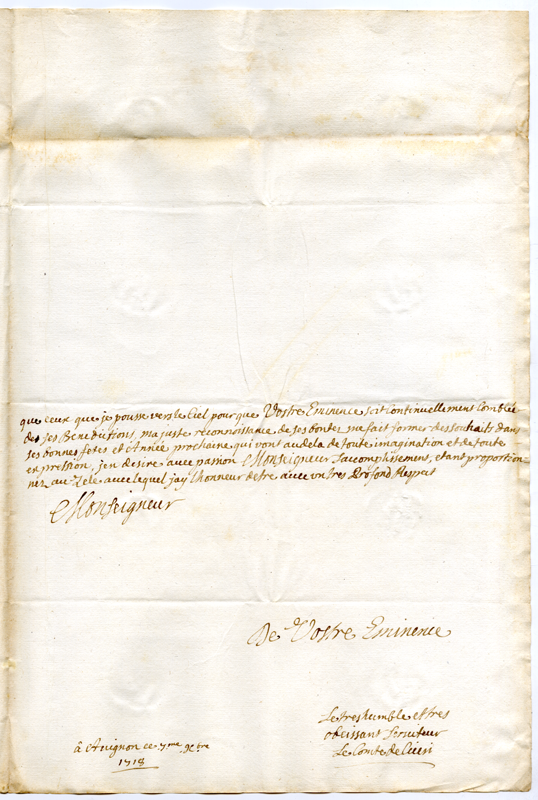 que ceux que je pousse vers le Ciel pour que Vostre Eminence soit continuellement Comblée
des ses Benedictions, ma juste reconnoissance de ses bontez me fait former des souhaits dans
ses bonnes fetes et Année prochaine qui vont au dela de toute imagination et de toute
expression, j'en desire avec passion Monseigneur l'accomplissement, etant proportion
nez au Zele avec lequel jay lhonneur detre avec un tres Profond Respect
Monseigneur
De Vostre Eminence
Le tres humble et tres
obeissant Serviteur
Le Comte de
à Avignon ce 7me Xbre
1718